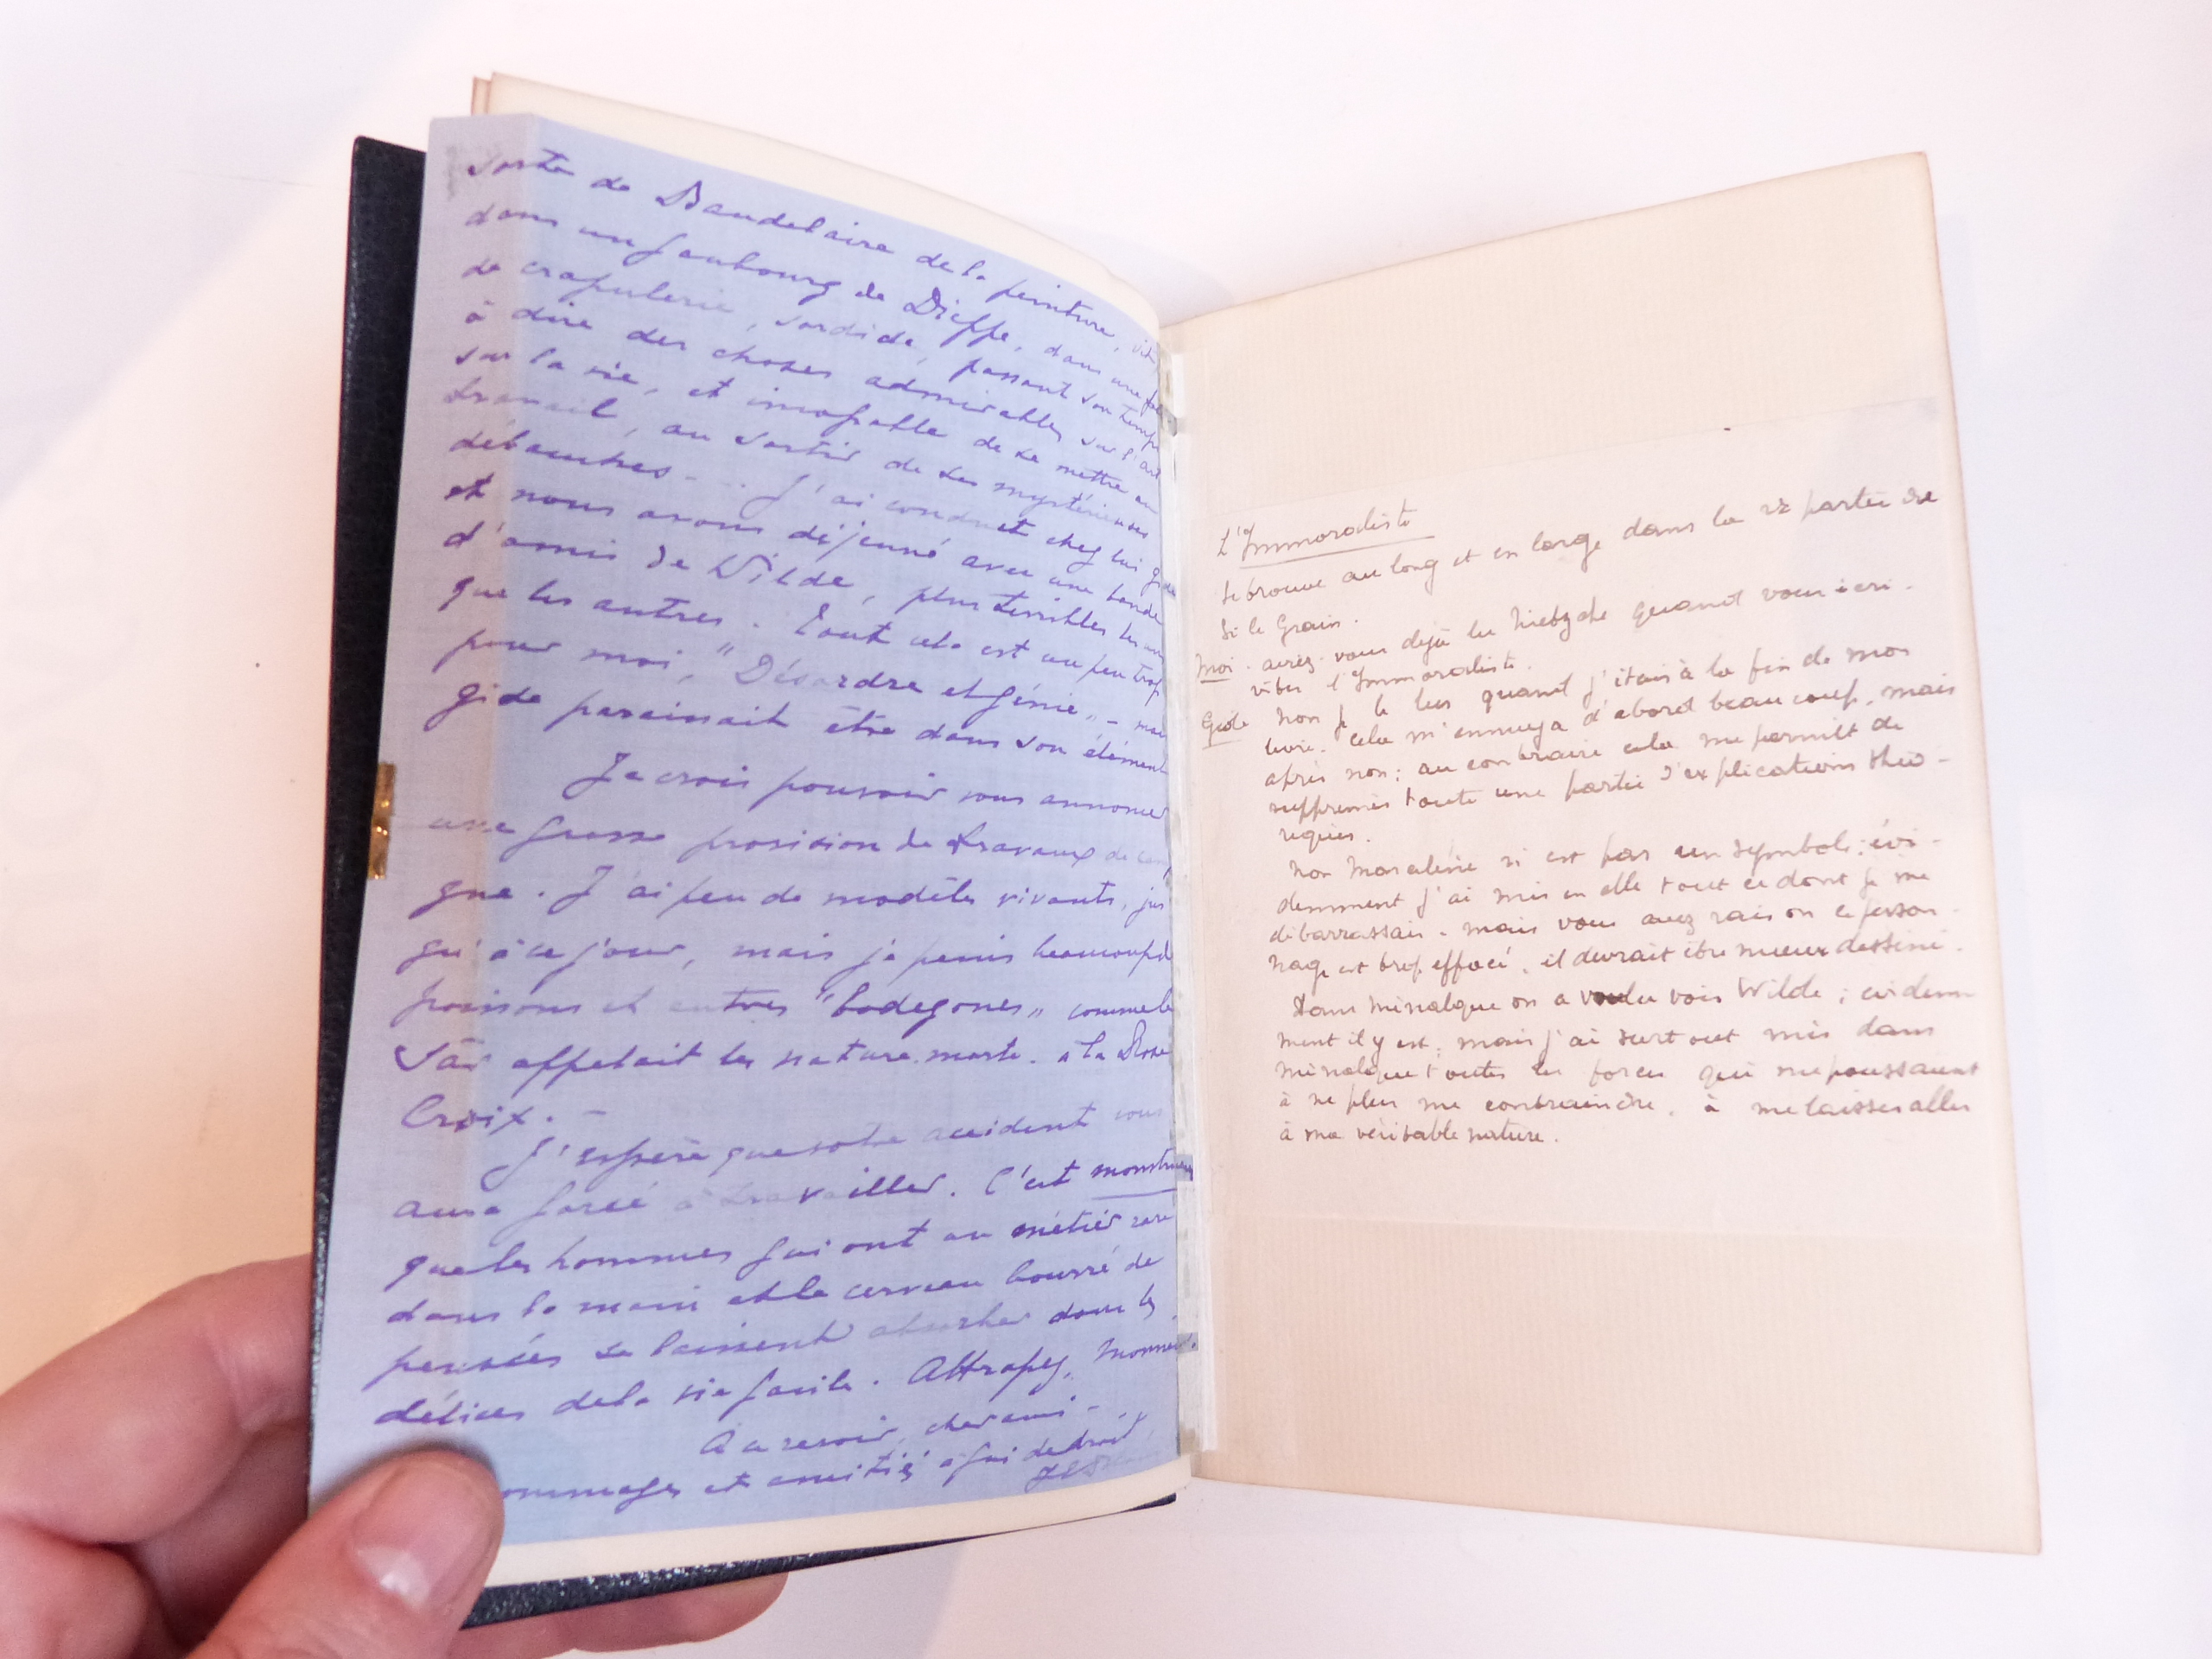 sorte de Baudelaire de la peinture,
dans un faubourg de Dieppe, dans une
de crapulerie, sordide, passant son temps
à dire des choses admirables sur l'art
sur la vie, et incapable de se mettre au
travail, au sortir de ses mystérieuses
débauches - .. J'ai conduit chez lui
et nous avons déjeuné avec une bande
d'amis de Wilde, plus terribles les uns
que les autres. Tout cela est un peu trop
pour moi, "Désordre et génie" -
Gide paraissait être dans son élément
Je crois pouvoir vous annoncer
une grosse provision de travaux de
gne. J'ai peu de modèles vivants, jus
qu'à ce jour, mais je peins beaucoup de
poissons et autres "bodegones" comme le
Sâr appelait les nature-morte. à la Rose
Croix. -
J'espère que votre accident vous
aura forcé à travailler. C'est monstrueux
que les hommes qui ont un métier rare
dans la main et le cerveau bourré de
pensées se laissent absorber dans les
délices de la vie facile. Attrapez,
Au revoir, cher ami -
ommages et amitiés à qui de droit,
L'Immoraliste
se trouve au long et en large dans la 2e partie de
Si le Grain.
Moi. aviez-vous déjà lu Nietzche quand vous écri-
vites l'Immoraliste.
Gide Non je le lus quand j'étais à la fin de mon
livre. Cela m'ennuya d'abord beaucoup, mais
après non; au contraire cela me permit de
supprimer toute une partie d'explications théo-
riques.
Non Marceline n'est pas un symbole; évi-
demment j'ai mis en elle tout ce dont je me
débarrassais. mais vous avez raison ce person-
nage est trop effacé. il devrait être mieux dessiné.
Dans Ménalque on a voulu voir Wilde; evidem-
ment il y est; mais j'ai surtout mis dans
Ménalque toutes les forces qui me poussaient
à ne plus me contraindre, à me laisser aller
à ma véritable nature.